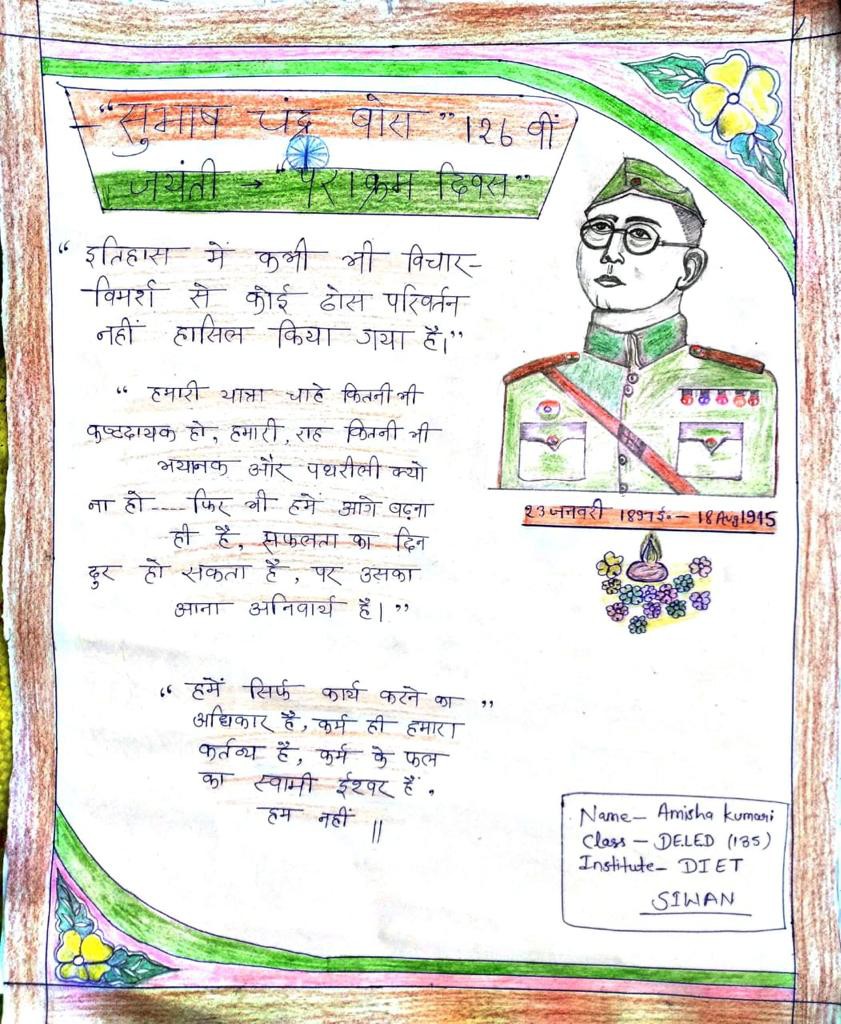 "सुभाष चंद्र बोस" 126 वीं
जयंती → "पराक्रम दिवस"
" इतिहास में कभी भी विचार-
विमर्श से कोई ठोस परिवर्तन
नहीं हासिल किया गया है।"
" हमारी यात्रा चाहे कितनी भी
कष्टदायक हो, हमारी, राह कितनी भी
भयानक और पथरीली क्यो
ना हो ---- फिर भी हमें आगे बढ़ना
ही है, सफलता का दिन
दुर हो सकता है, पर उसका
आना अनिवार्य है। "
" हमें सिर्फ कार्य करने का "
अधिकार है, कर्म ही हमारा
कर्तव्य है, कर्म के फल
का स्वामी ईश्वर हैं,
हम नहीं ||
23 जनवरी 1897ई. - 18 Aug 1945
Name- Amisha kumari
Class - D.EL.ED (135)
Institute- DIET
SIWAN